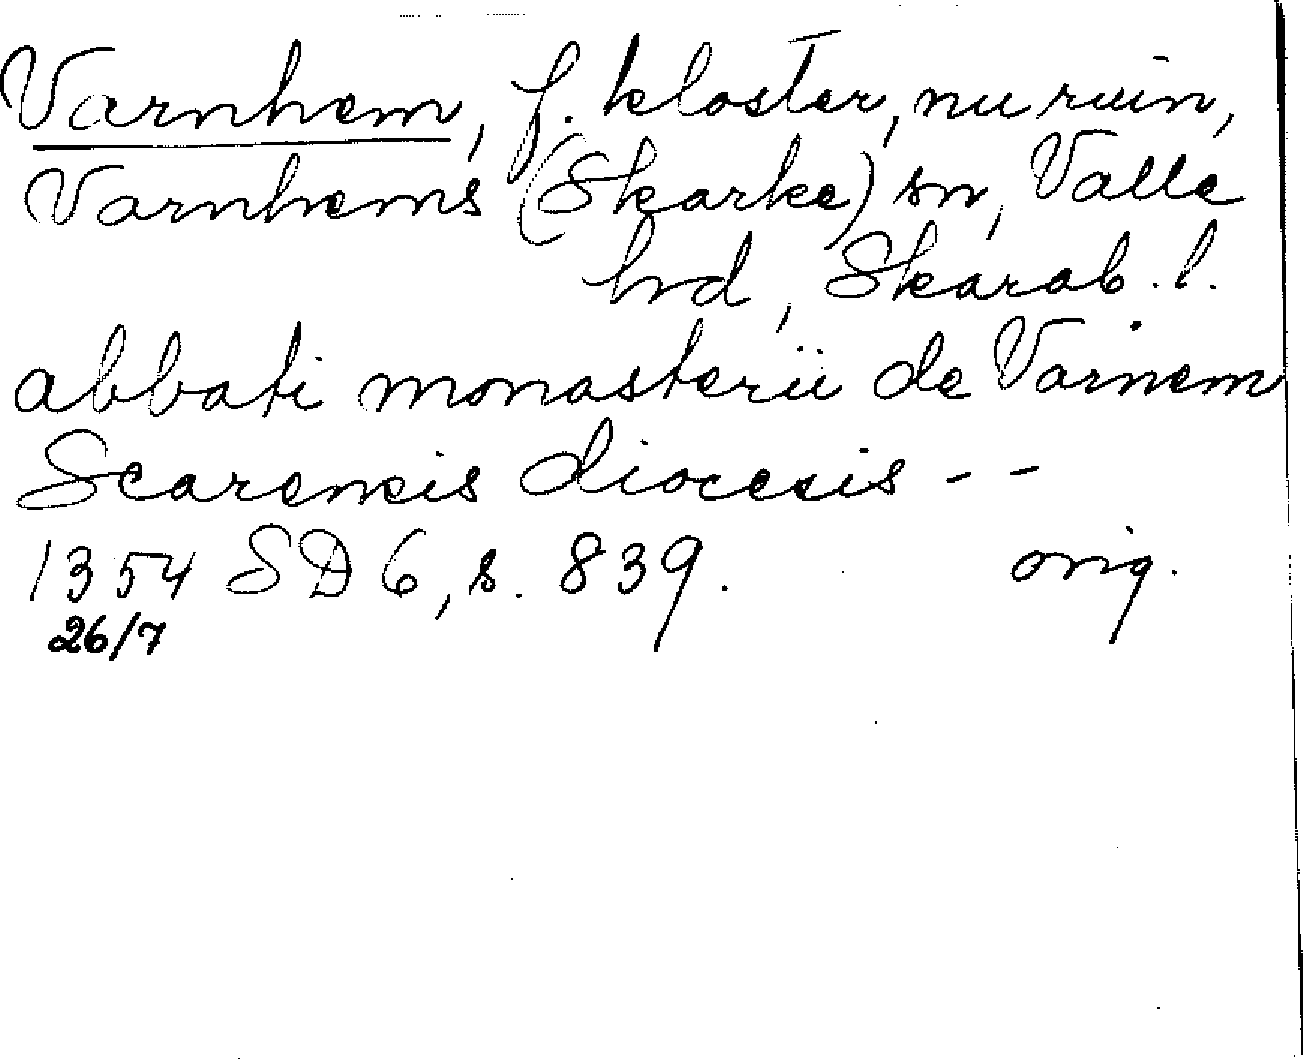 Varnhem, f. kloster, nu ruin,
Varnhems (Skarke) sn, Valle
hd, Skarab. l.
abbati monasterii de Varnem
Scarensis diocesis - -
1354 SD 6, s. 839. orig.
26/7